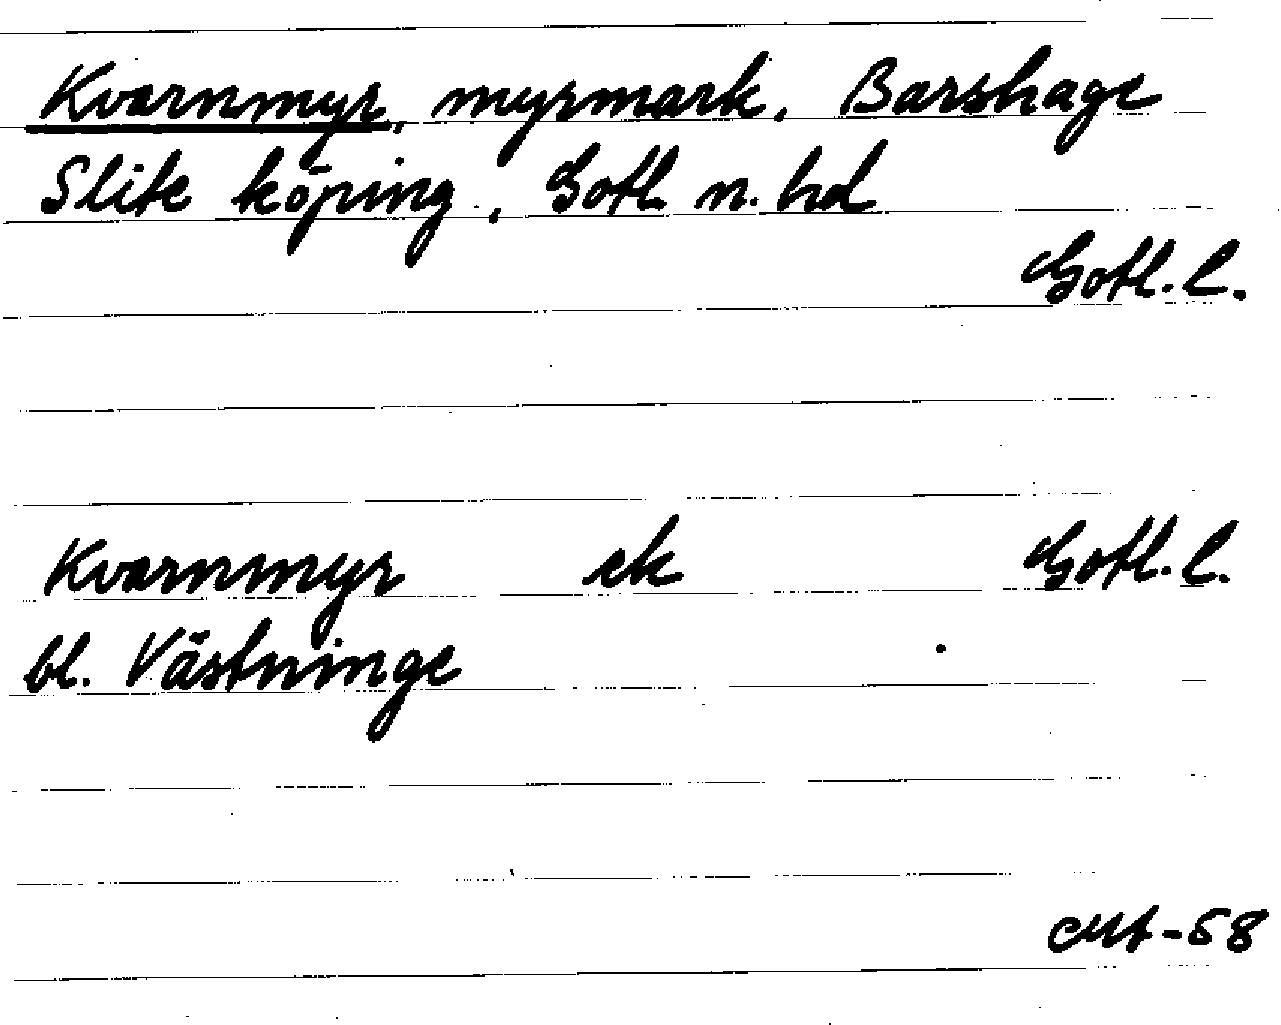 Kvarnmyr, myrmark, Barshage
Slite köping, Gotl. n. hd
Gotl. l.
Kvarnmyr ek Gotl. l.
bl. Västninge
-58